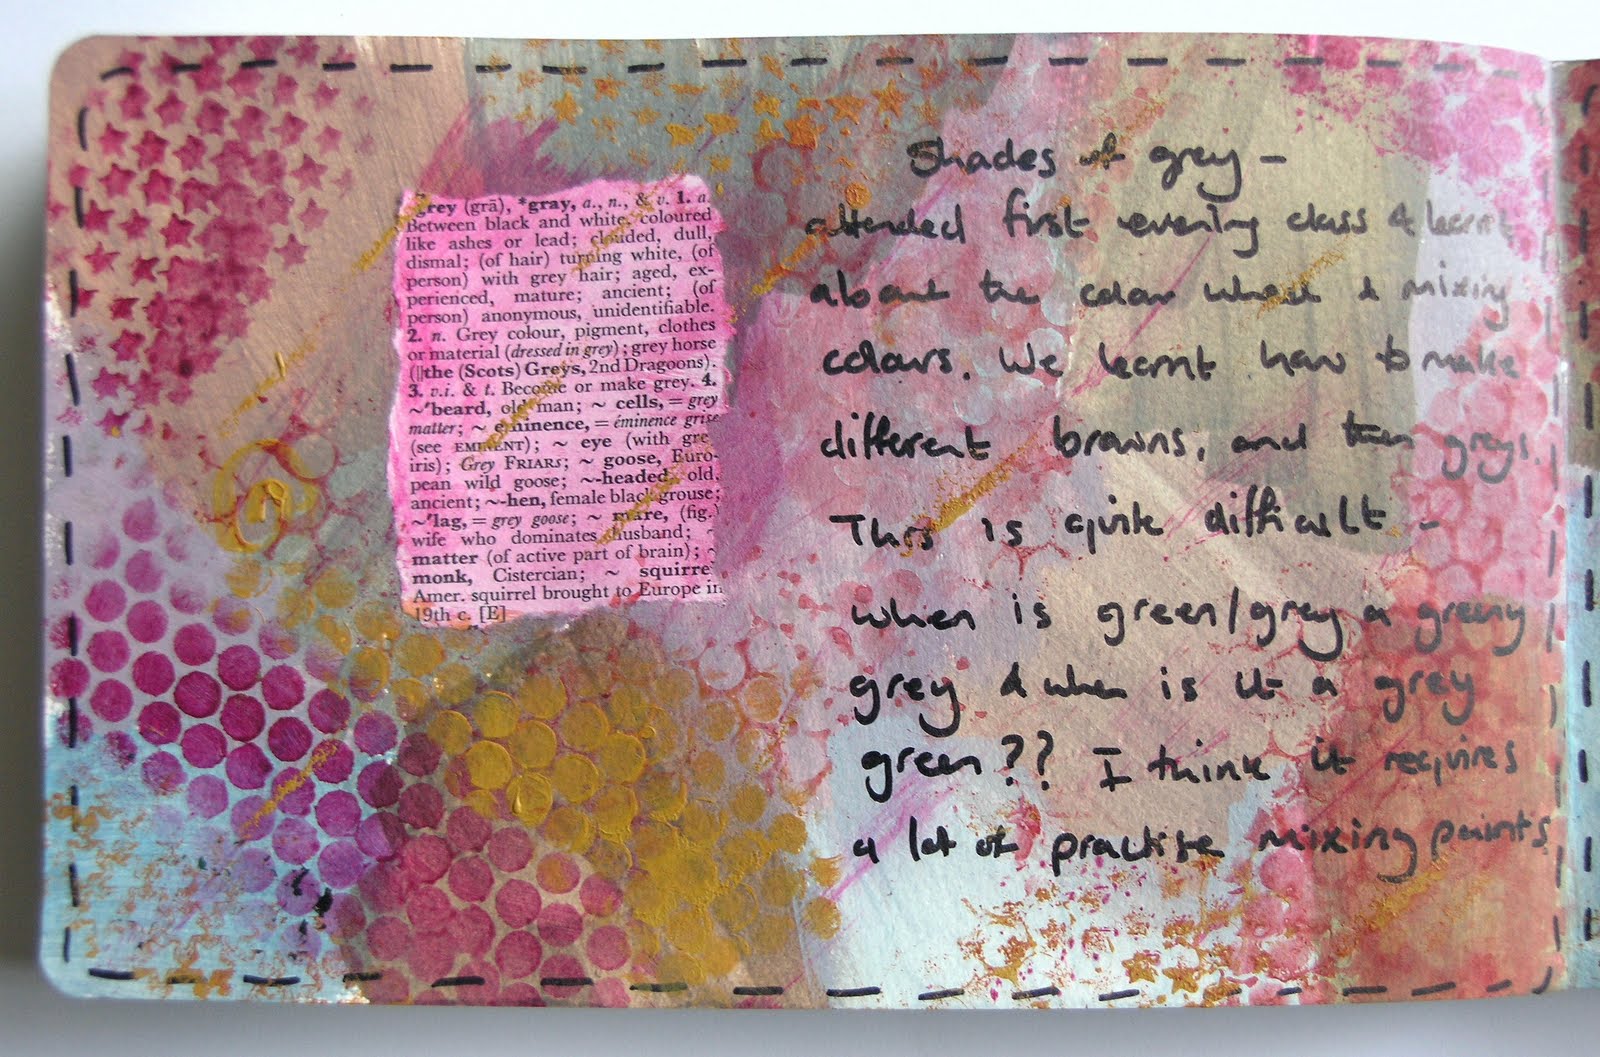 grey (grā), *gray, a., n., & v. 1. a.
Between black and white, coloured
like ashes or lead; clouded, dull,
dismal; (of hair) turning white, (of
person) with grey hair; aged, ex-
perienced, mature; ancient; (of
person) anonymous, unidentifiable.
2. n. Grey colour, pigment, clothes
or material (dressed in grey); grey horse
(||the (Scots) Greys, 2nd Dragoons).
3. v.i. & t. Become or make grey. 4.
~'beard, old man; ~ cells, = grey
matter; ~ eminence, = éminence grise
(see EMINENT); ~ eye (with grey
iris); Grey FRIARS; ~ goose, Euro-
pean wild goose; ~-headed, old,
ancient; ~-hen, female black grouse;
~'lag, = grey goose; ~ mare, (fig.)
wife who dominates husband; ~
matter (of active part of brain); ~
monk, Cistercian; ~ squirrel
Amer. squirrel brought to Europe in
19th c. [E]
Shades of grey –
attended first evening class & learnt
about the colour wheel & mixing
colours. We learnt how to make
different browns, and then greys.
This is quite difficult –
when is green/grey a greeny
grey & when is it a grey
green?? I think it requires
a lot of practise mixing paints.